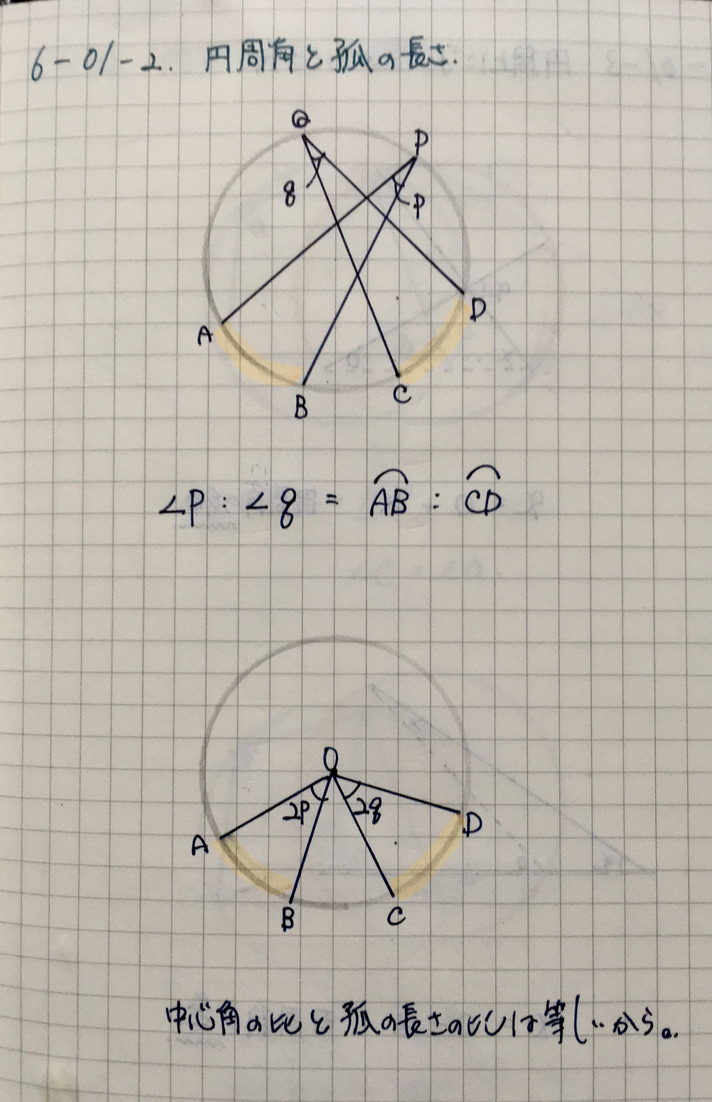 6-01-2. 円周角と弧の長さ.
Q
P
q
p
A
D
B
C
∠P : ∠q = AB : CD
O
2p
2q
A
D
B
C
中心角の比と弧の長さの比は等しいから。